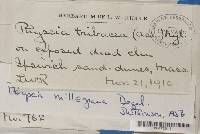 HERBARIUM OF L. W. RIDDLE
Physcia tribacea (Ach.) Nyl.
on exposed dead elm
Ipswich sand-dunes, Mass.
LWR Nov. 21, 1910
Physcia millegrana Degel.
No. 762